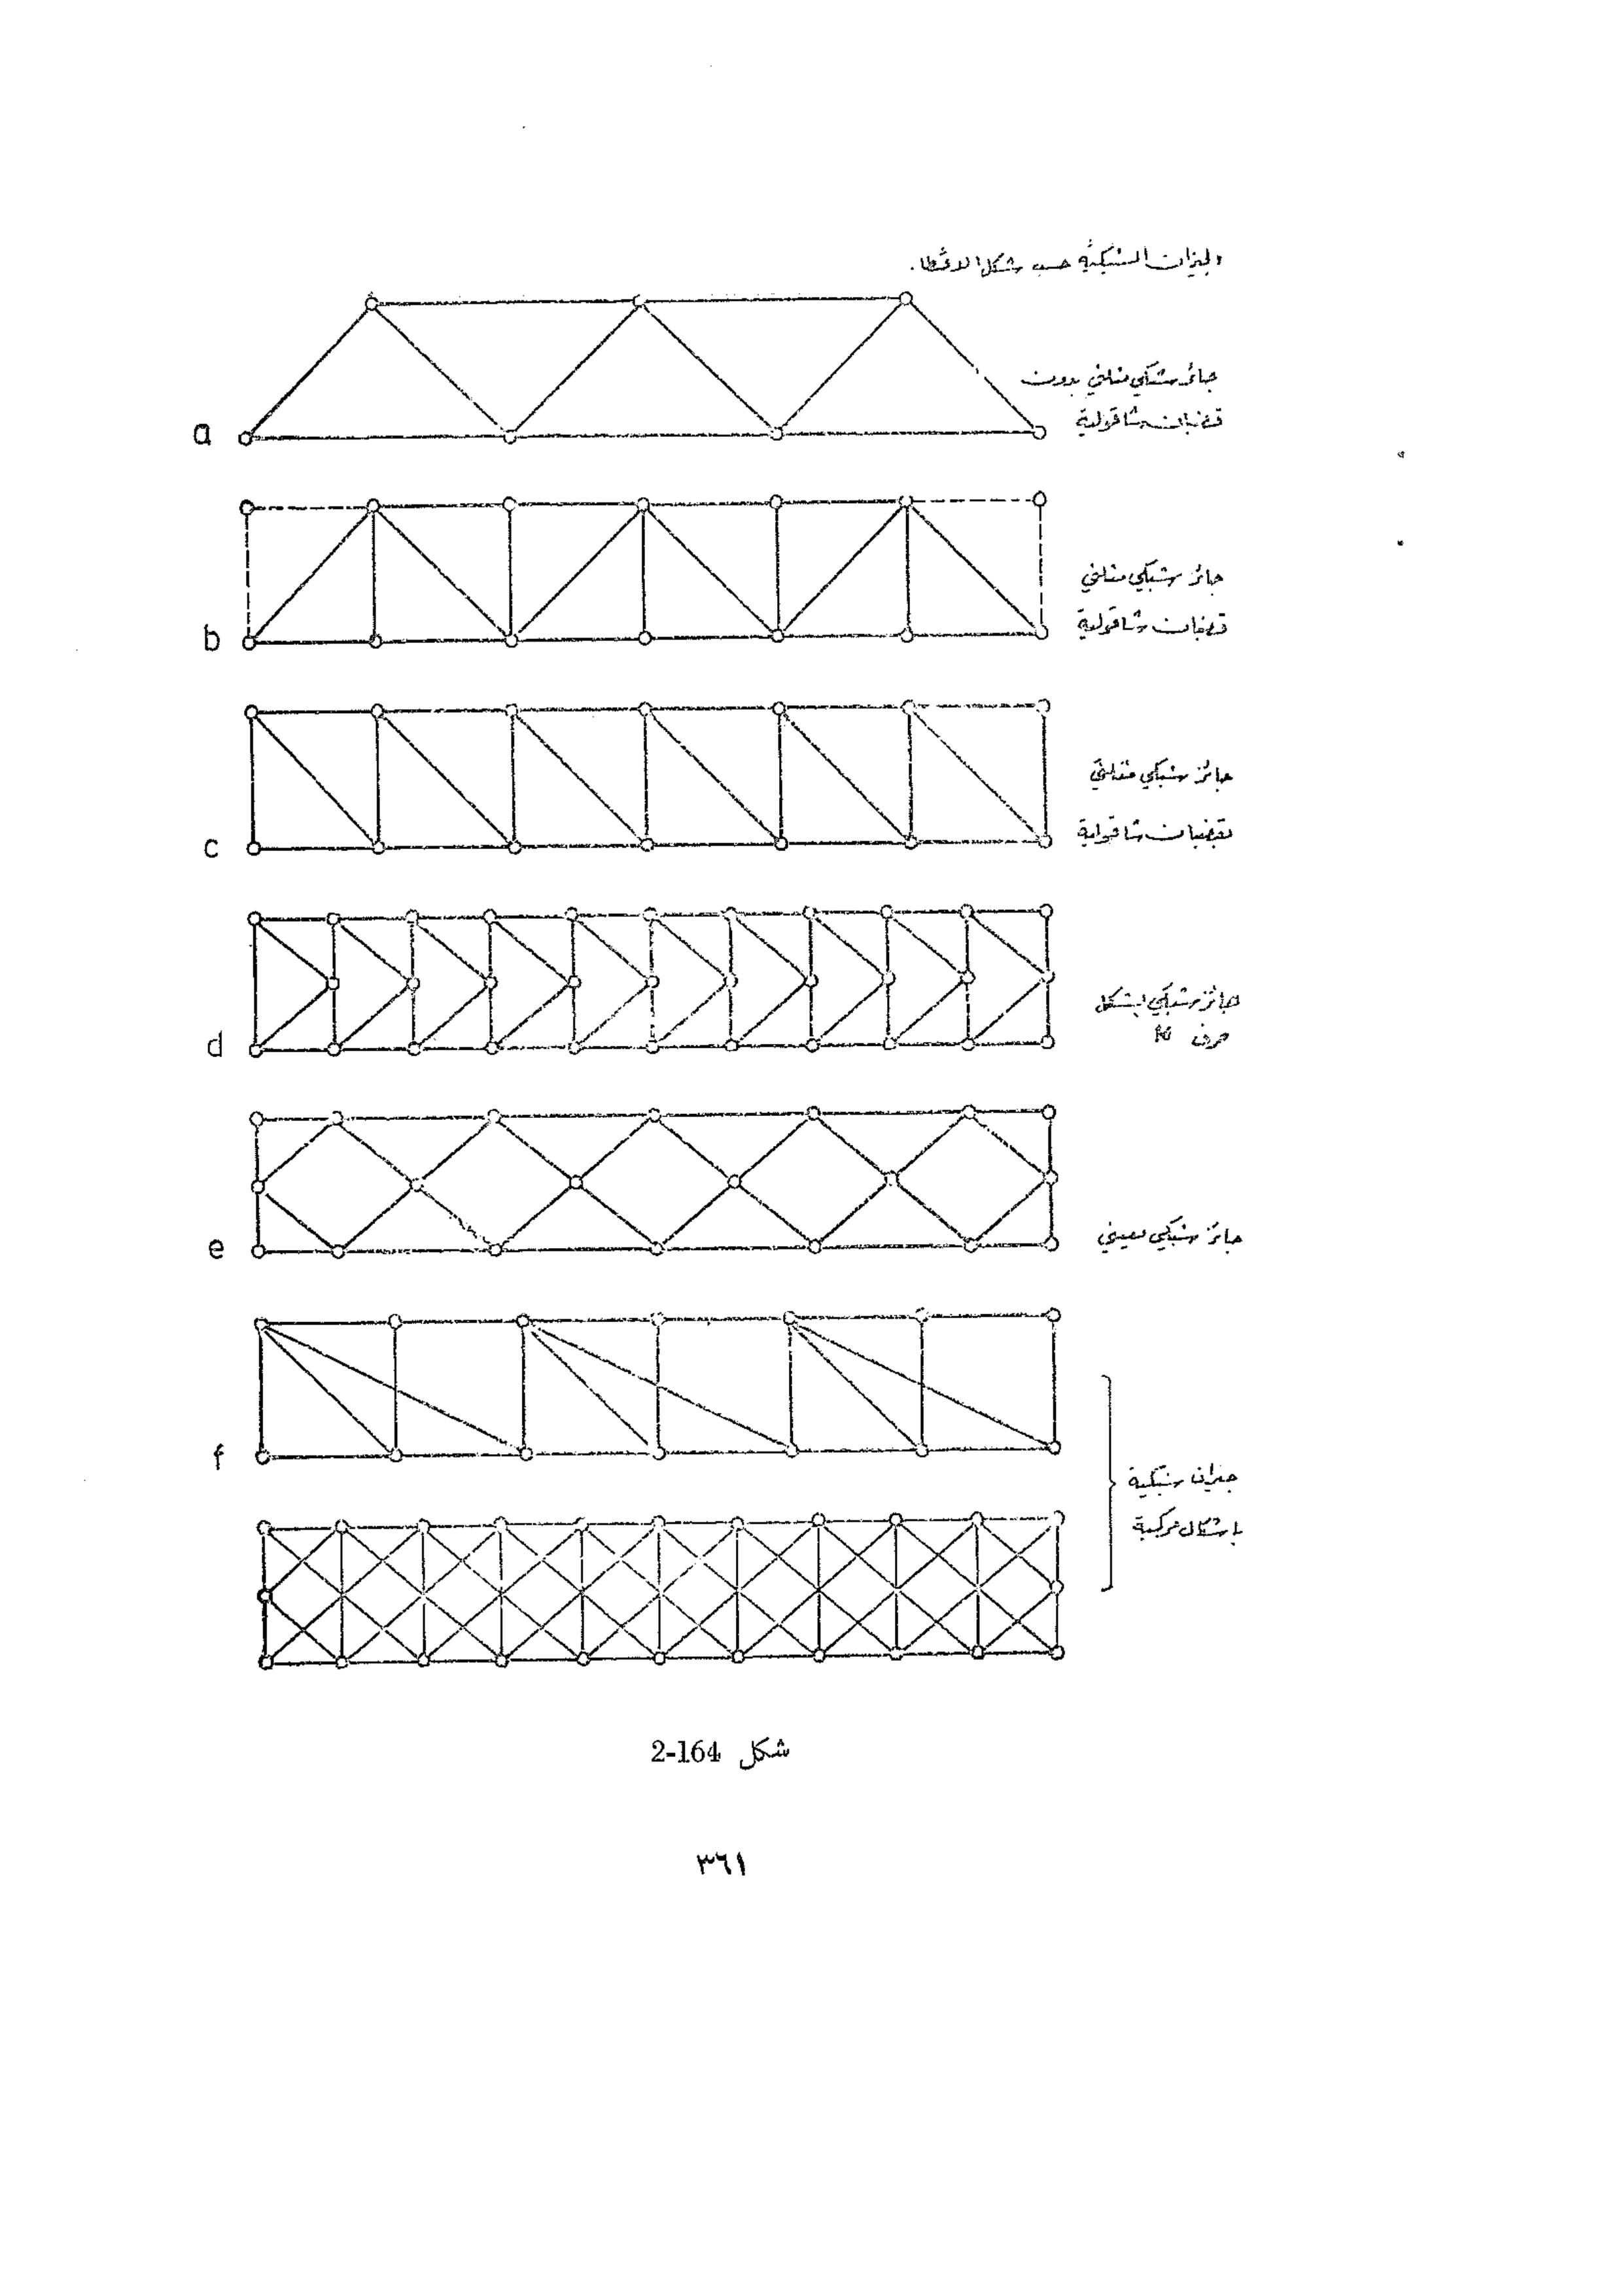 الجيزان الشبكية حسب شكل الاعطا.
جائز شبكي مثلثي بدون
قضبان شاقولية
a
جائز شبكي مثلثي
قضبان شاقولية
b
جائز شبكي مثلثي
بقضبان شاقولية
c
جائز شبكي بشكل
حرف K
d
جائز شبكي معيني
e
f
جيزان شبكية
باشكال مركبة
شكل 2-164
٣٦١